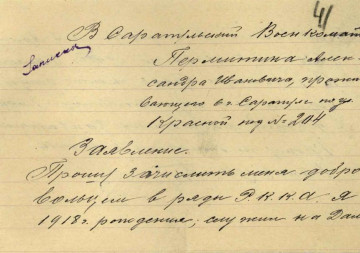 41
Записки
В Саратовский Военкомат
Пермитина Алек-
сандра Ивановича, прожи-
вающего в г. Саратове по ул.
Красной под № 204
Заявление.
Прошу зачислить меня добро-
вольцем в ряды Р.К.К.А. Я
1918 г. рождения; служил на Дал